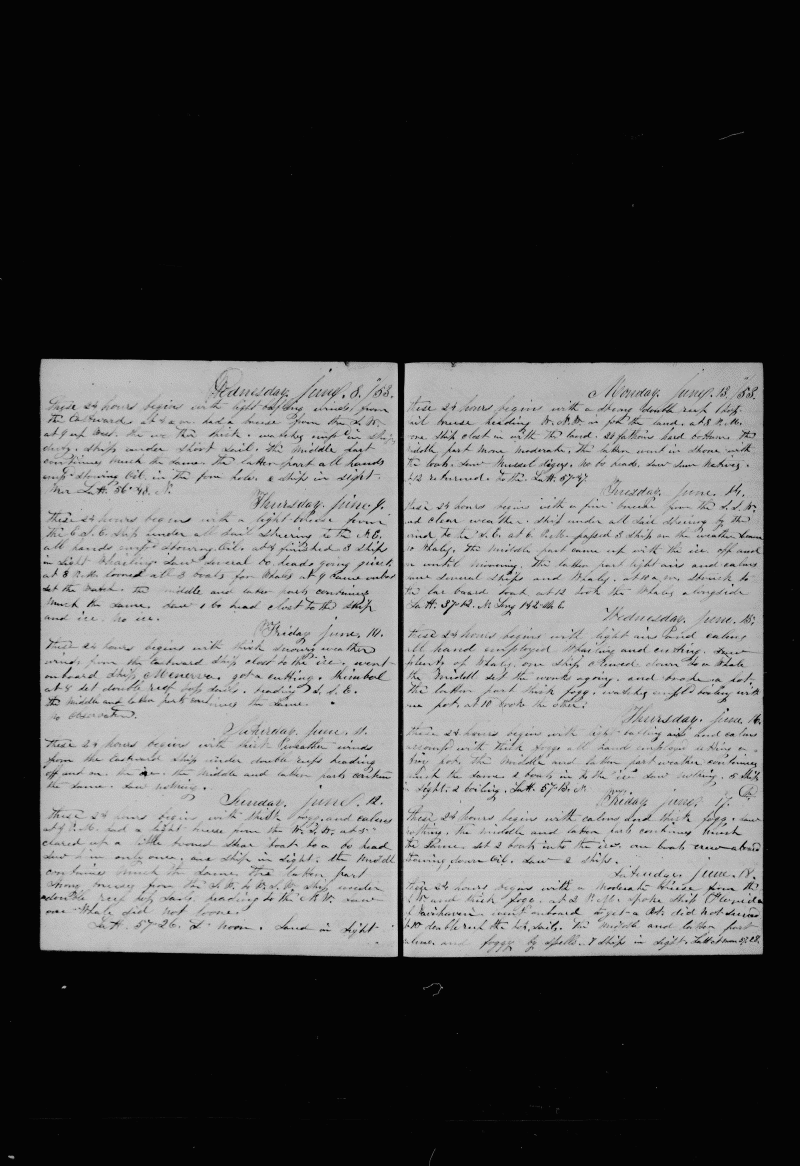 Wednesday. June. 8. /58.
These 24 hours begins with light winds from
the Eastward. at 4 a.m. had a breeze from the S.W.
at 9 up West. thick. watches employed in ship
duty. Ship under short sail. the Middle part
continues much the same. the latter part all hands
employed stowing oil. in the fore hole. a ship in sight.
Mer Latt. 56-48. N.
Thursday. June. 9.
These 24 hours begins with a light breeze from
the E of S. ship under all sail Steering to the N.E.
all hands employed stowing oil. at 4 finished 3 ship
in Sight Whaling. Saw several bo. heads going quick.
at 3 P.M. lowed all 3 boats for Whales at 9 came onboard
set the watch. the middle and latter parts continues
Much the same. Saw 1 bo head close to the ship
and ice. No ice.
Friday June. 10.
These 24 hours begins with thick snowy weather
winds from the Eastward ship close to the ice. went
onboard Ship Minerva. got a cutting.
at 8 set double reef top sails. heading S. S. E.
the middle and latter parts continues the same.
No observation.
Saterday. June. 11.
These 24 hours begins with thick weather winds
from the Eastward ship under double reefs heading
off and on. the ice. the middle and latter parts continues
the same. Saw nothing.
Sunday. June. 12.
These 24 hours begins with thick fogg and calms
at 4 P.M. had a light breeze from the W.S.W. at 5
cleared up a little lowed Star boat to a bo head
Saw him only once. one ship in sight. the middle
continues much the same. the latter part
Strong breezes from the S.W. to W.S.W. Ship under
double reef top Sails. heading to the N.W. saw
one Whale did not lower.
Latt. 57-26. at Noon. Land in sight
Monday. June. 13. /58.
These 24 hours begins with a strong double reef top
sail breeze heading W.N.W. in for the land. at 8 P.M.
one ship close in with the land. 20 fathoms hard bottom. the
middle part more moderate. the latter went in shore with
the boats. Saw Mussel diggers. no bo heads. saw some Natives.
at 12 returned. Latt. 57-57
Tuesday June. 14.
These 24 hours begins with a fine breeze from the S.S.W.
and clear weather. ship under all sail steering by the
wind to the S.E. at 6 P.M. passed 3 ship on the weather beam
no Whales. the middle part came up with the ice. off and
on until morning. the latter part light airs and calms
saw several ships and Whales. at 10 a.m. struck to
the lar board boat. at 12 took the Whales alongside
Latt. 57-12. N. Long 162-46 E
Wednesday. June. 15.
These 24 hours begins with light airs and calms
all hand employed Whaling and cutting. Saw
plenty of Whales. one ship down to a Whale
the Middle set the works agoing. and broke a pot.
the latter part thick fogg. watches employed boiling with
one pot. at 10 broke the other.
Thursday. June 16.
These 24 hours begins with light airs and calms
accompanied with thick fogg all hand employed setting a
try pot. the middle and latter part weather continues
much the same 2 boats in to the ice. saw nothing. 5 Ships
in Sight. 2 boiling. Latt. 57-13. N.
Friday. June. 17.
These 24 hours begins with calms and thick fogg. saw
nothing. the middle and latter part continues much
the Same. set 2 boats into the ice. one boats crew aboard
stowing down oil. Saw 2 ships.
Saterday. June. 18.
These 24 hours begins with a moderate breeze from the
S.W. and thick fogg. at 2 P.M. spoke ship Florida
of Fairhaven. went onboard to get a Pot. did not succeed
at 10 double reeft the top sails. the middle and latter part
calms. and foggy by spells. 7 ship in sight. Latt at noon 57-28.